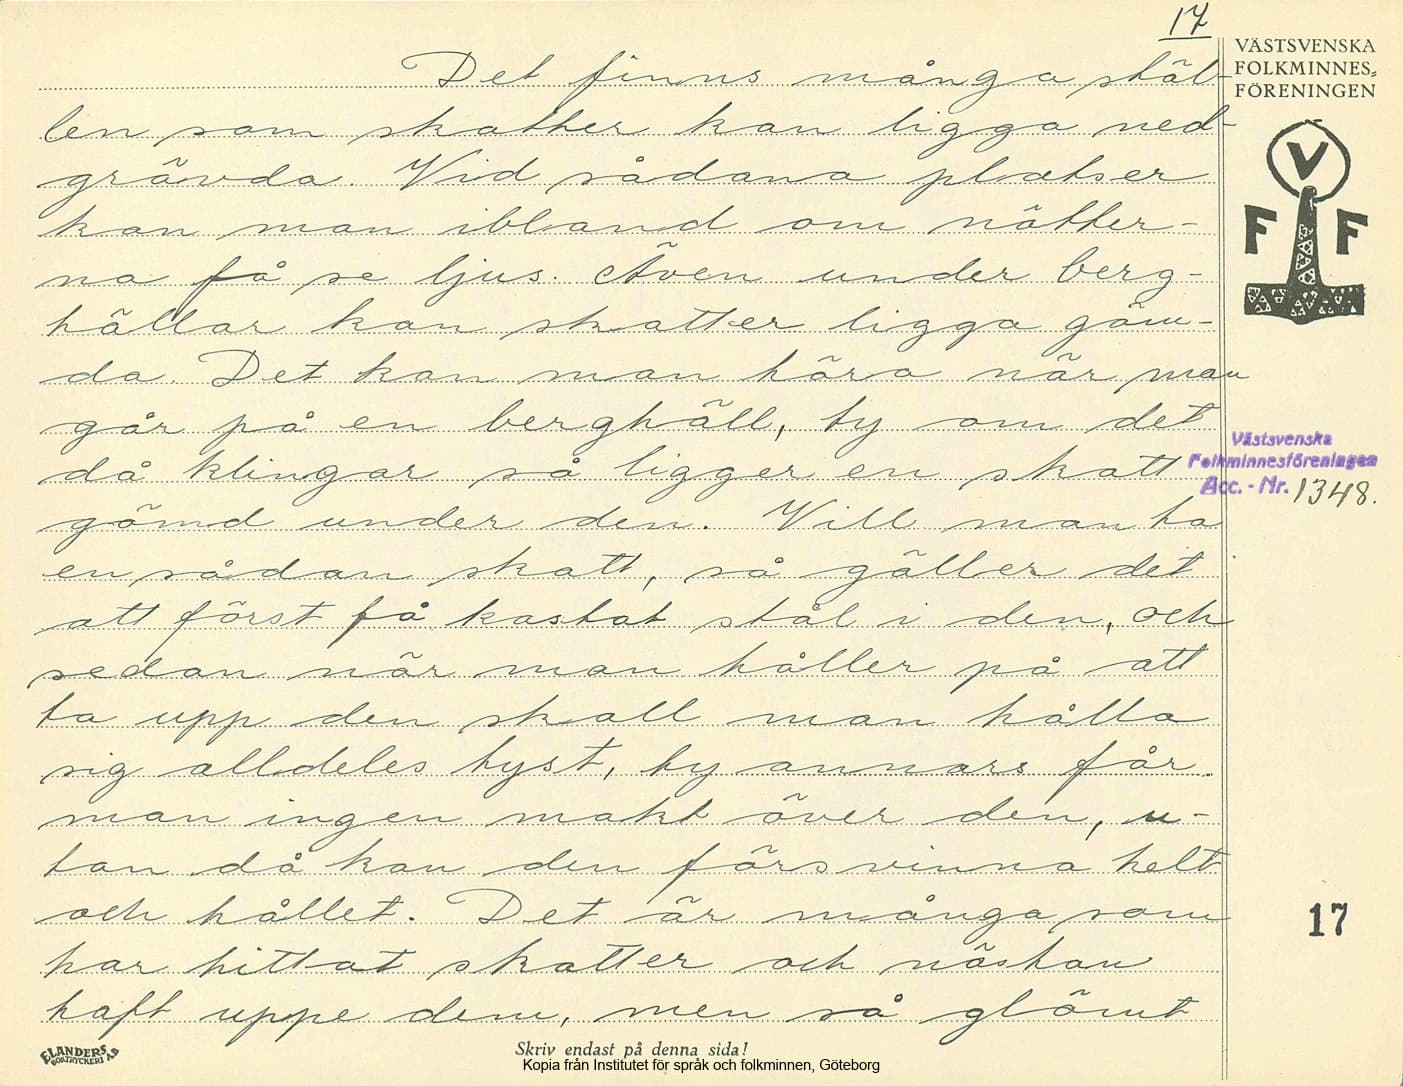 17
VÄSTSVENSKA
FOLKMINNES=
FÖRENINGEN
V
F F
Det finns många stäl-
len som skatter kan ligga ned-
grävda. Vid sådana platser
kan man ibland om nätter-
na få se ljus. Även under berg-
hällar kan skatter ligga göm-
da. Det kan man höra när man
går på en berghäll, ty om det
då klingar så ligger en skatt
gömd under den. Vill man ta
en sådan skatt, så gäller det
att först få kastat stål i den, och
sedan när man håller på att
ta upp den skall man hålla
sig alldeles tyst, ty annars får
man ingen makt över den, u-
tan då kan den försvinna helt
och hållet. Det är många som
har hittat skatter och nästan
haft uppe dem, men så glömt
Västsvenska
Folkminnesföreningen
Acc. - Nr. 1348.
17
ELANDERS
BOKTRYCKERI AB
Skriv endast på denna sida!
Kopia från Institutet för språk och folkminnen, Göteborg